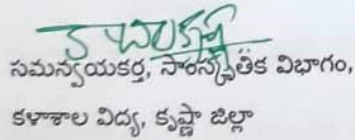 సమన్వయకర్త, సాంస్కృతిక విభాగం,
కళాశాల విద్య, కృష్ణా జిల్లా